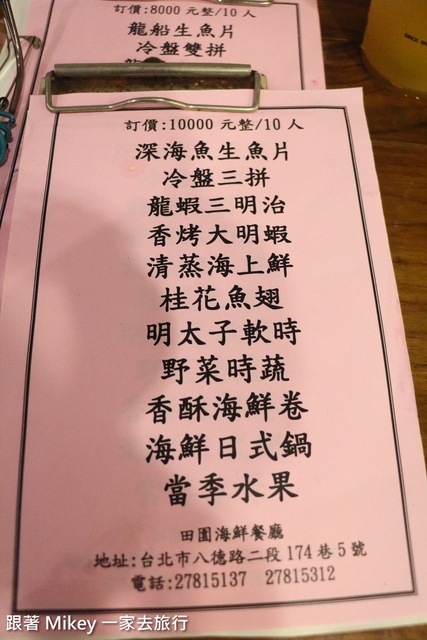 訂價:8000 元整/10 人
龍船生魚片
冷盤雙拼
訂價:10000 元整/10 人
深海魚生魚片
冷盤三拼
龍蝦三明治
香烤大明蝦
清蒸海上鮮
桂花魚翅
明太子軟時
野菜時蔬
香酥海鮮卷
海鮮日式鍋
當季水果
田園海鮮餐廳
地址:台北市八德路二段 174 巷 5 號
電話:27815137 27815312
跟著 Mikey 一家去旅行